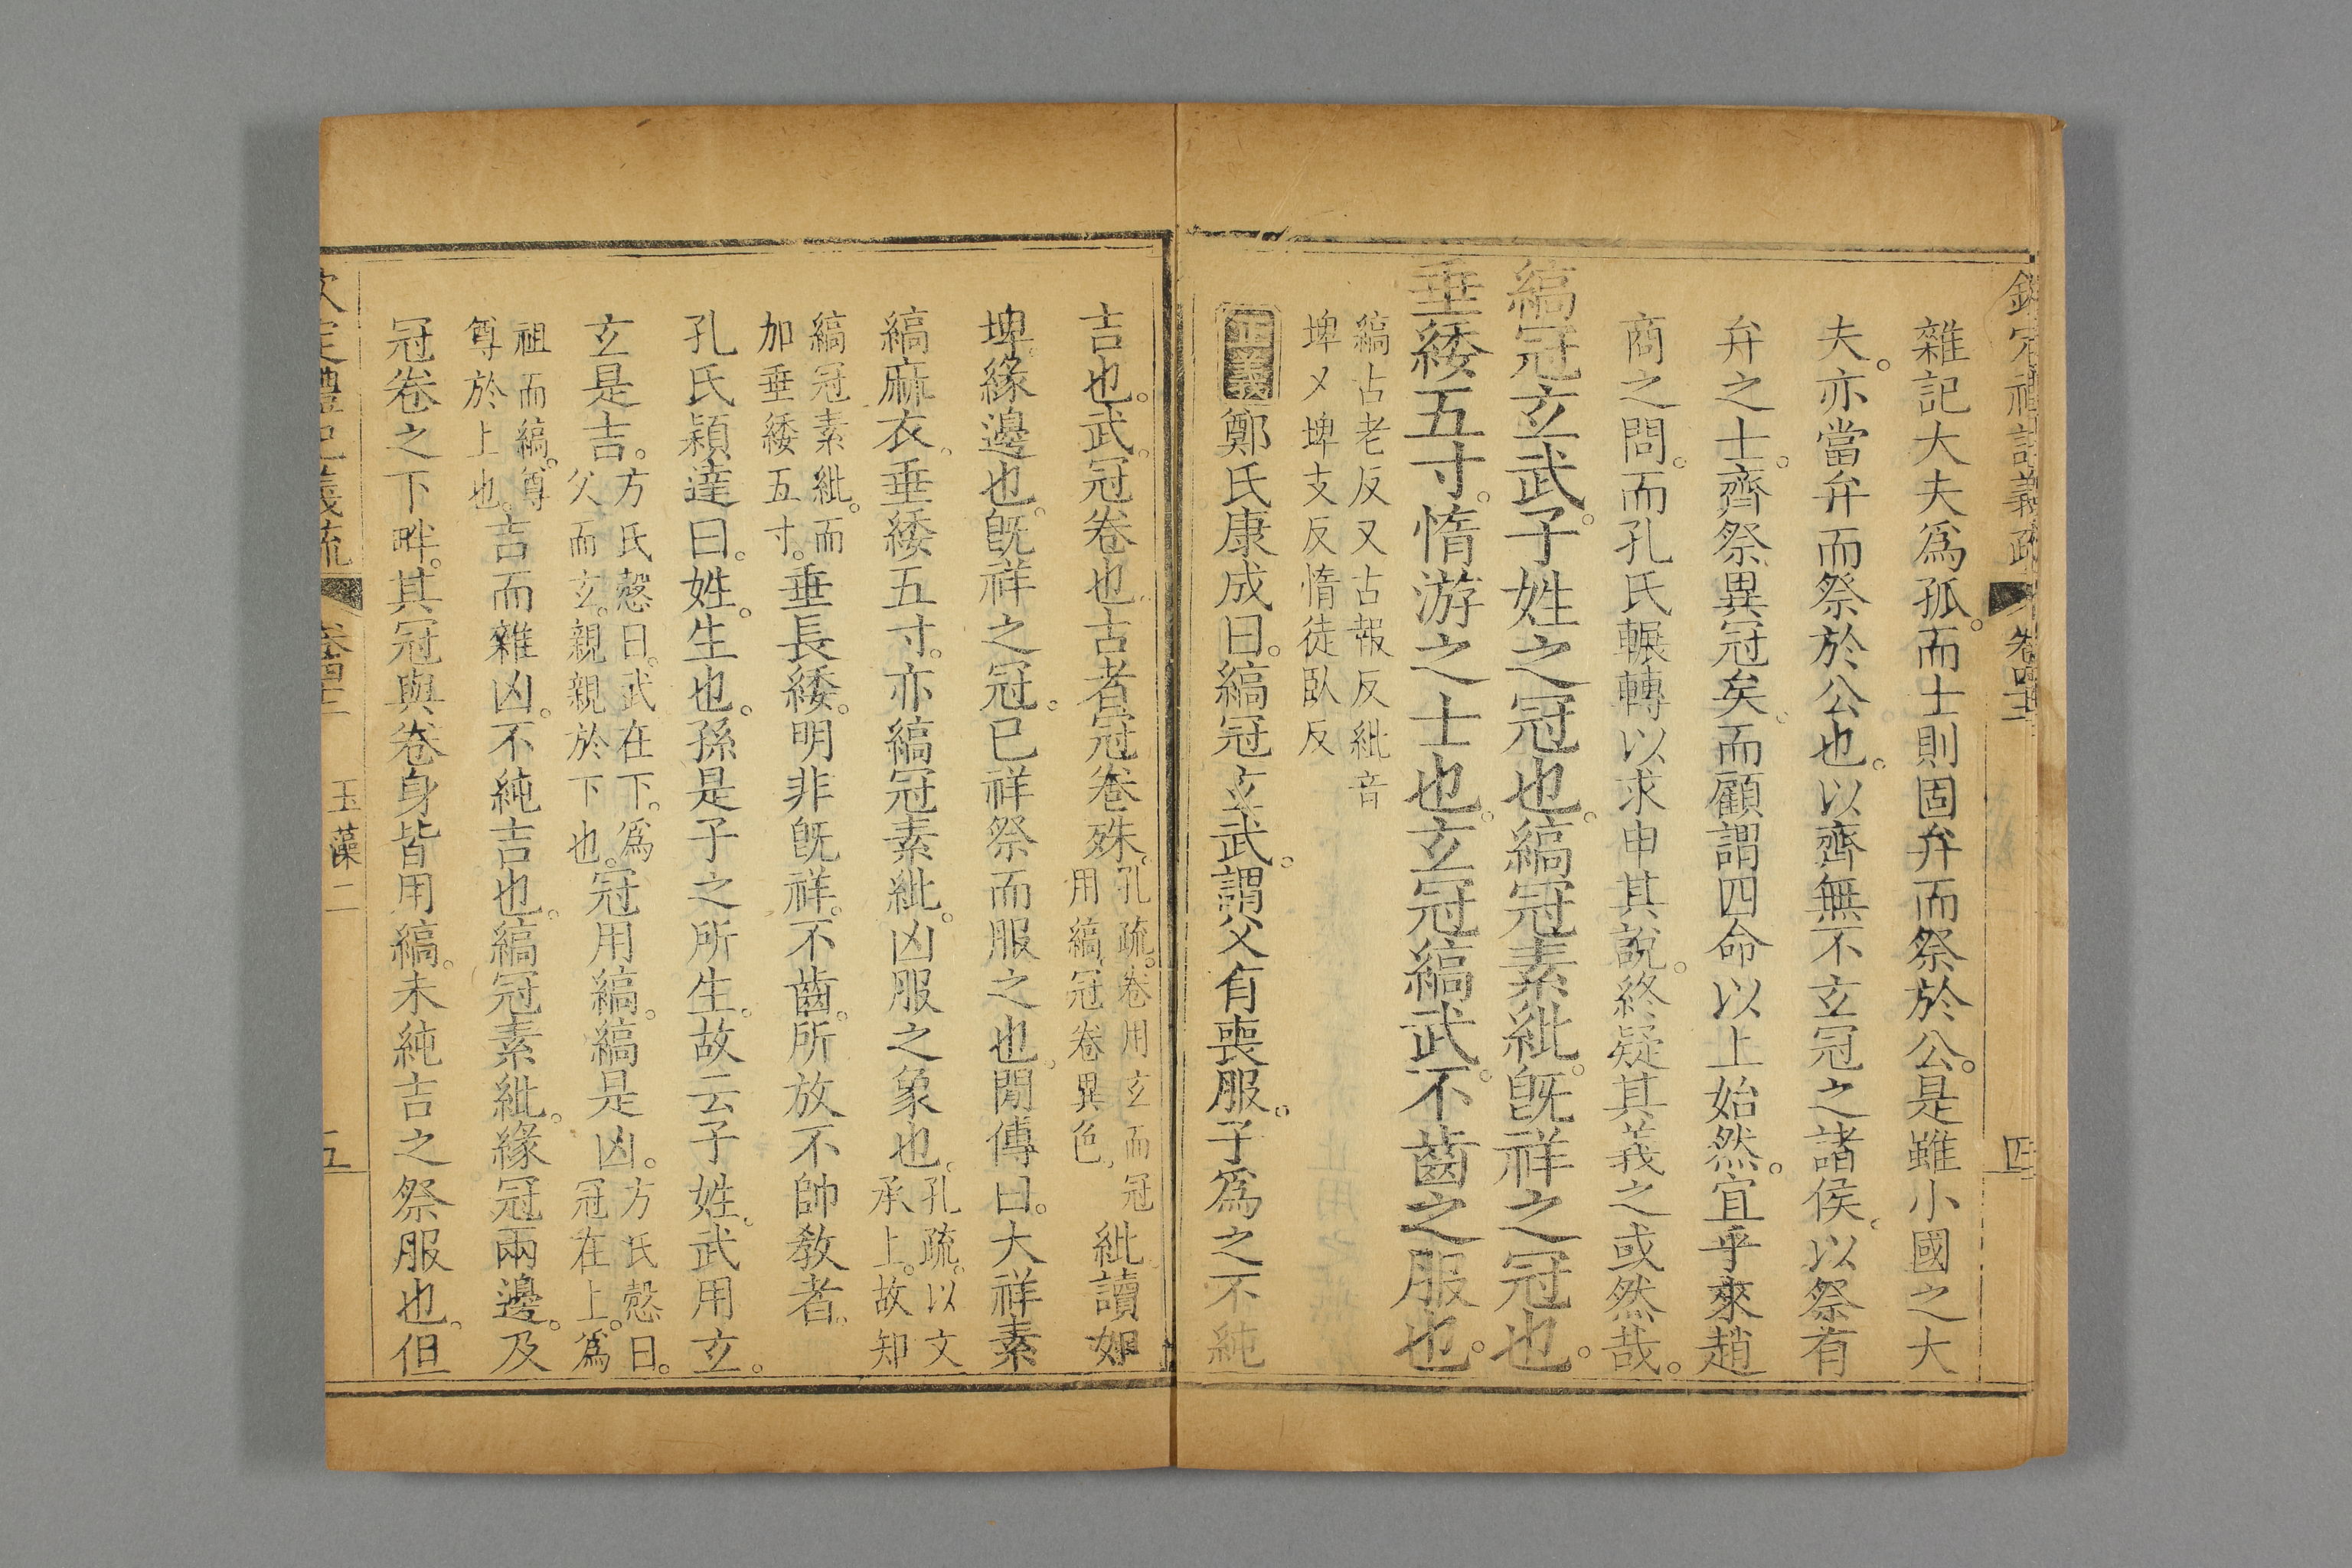 欽定禮記義疏 卷四十二 四
雜記大夫爲孤。而士則固弁而祭於公。是雖小國之大
夫。亦當弁而祭於公也。以齊無不玄冠之諸侯。以祭有
弁之士。齊祭異冠矣。而顧謂四命以上始然。宜乎來趙
商之問。而孔氏輾轉以求申其說。終疑其義之或然哉。
縞冠玄武。子姓之冠也。縞冠素紕。旣祥之冠也。
垂緌五寸。惰游之士也。玄冠縞武。不齒之服也。
縞古老反又古報反紕音
埤又埤支反惰徒臥反
正義鄭氏康成曰。縞冠玄武。謂父有喪服。子爲之不純
吉也。武。冠卷也。古者冠卷殊。孔疏。卷用玄而冠
用縞。冠卷異色。紕讀如
埤。緣邊也。旣祥之冠。已祥祭而服之也。閒傳曰。大祥素
縞麻衣。垂緌五寸。亦縞冠素紕。凶服之象也。孔疏。以文
承上。故知
縞冠素紕。而
加垂緌五寸。垂長緌。明非旣祥。不齒。所放不帥敎者。
孔氏穎達曰。姓。生也。孫是子之所生。故云子姓。武用玄。
玄是吉。方氏慤曰。武在下。爲
父而玄。親親於下也。冠用縞。縞是凶。方氏慤曰。
冠在上。爲
祖而縞。尊
尊於上也。吉而雜凶。不純吉也。縞冠素紕。緣冠兩邊。及
冠卷之下畔。其冠與卷身皆用縞。未純吉之祭服也。但
欽定禮記義疏 卷四十二 玉藻二 五